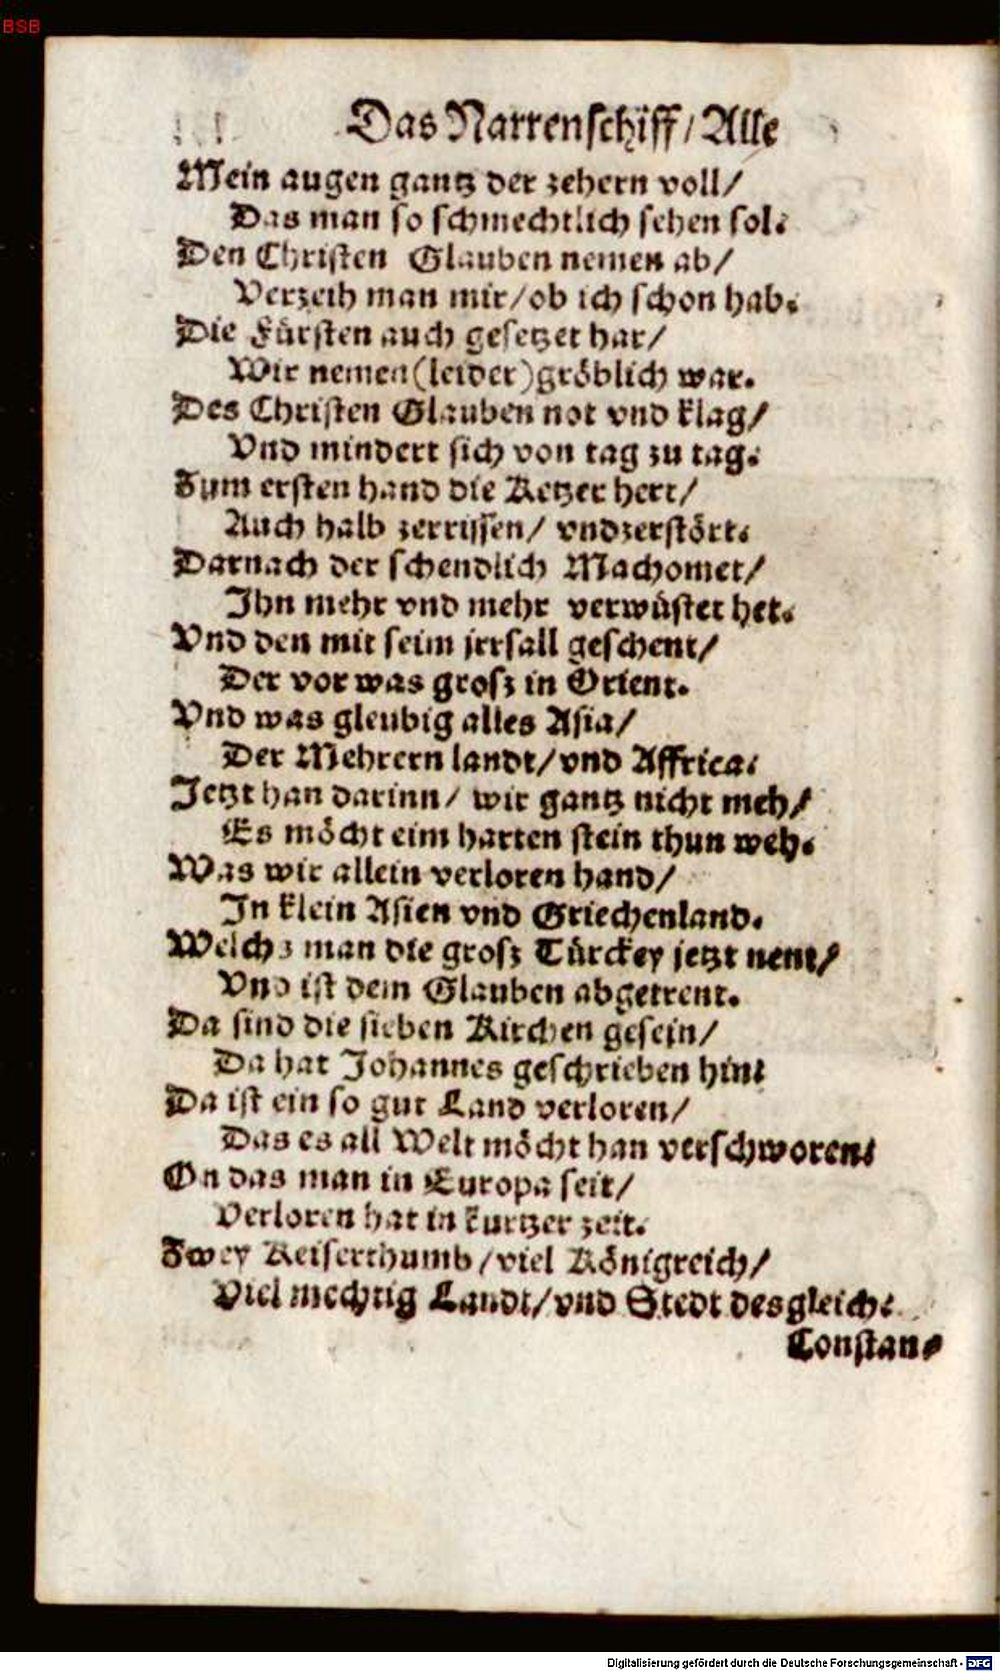 BSB
Das Narrenschiff/ Alle
Mein augen gantz der zehern voll/
Das man so schmechtlich sehen sol.
Den Christen Glauben nemen ab/
Verzeih man mir/ ob ich schon hab.
Die Fürsten auch gesetzet har/
Wir nemen (leider) gröblich war.
Des Christen Glauben not vnd klag/
Vnd mindert sich von tag zu tag.
Zum ersten hand die Ketzer hert/
Auch halb zerrissen/ vndzerstört.
Darnach der schendlich Machomet/
Ihn mehr vnd mehr verwüstet het.
Vnd den mit seim jrrsall geschent/
Der vor was grosz in Orient.
Vnd was gleubig alles Asia/
Der Mehrern landt/ vnd Affrica.
Jetzt han darinn/ wir gantz nicht meh/
Es möcht eim harten stein thun weh.
Was wir allein verloren hand/
In klein Asien vnd Griechenland.
Welchs man die grosz Türckey jetzt nent/
Vnd ist dem Glauben abgetrent.
Da sind die sieben Kirchen gesein/
Da hat Johannes geschrieben hin.
Da ist ein so gut Land verloren/
Das es all Welt möcht han verschworen.
On das man in Europa seit/
Verloren hat in kurtzer zeit.
Zwey Keiserthumb/ viel Königreich/
Viel mechtig Landt/ vnd Stedt desgleich.
Constan-
Digitalisierung gefördert durch die Deutsche Forschungsgemeinschaft - DFG